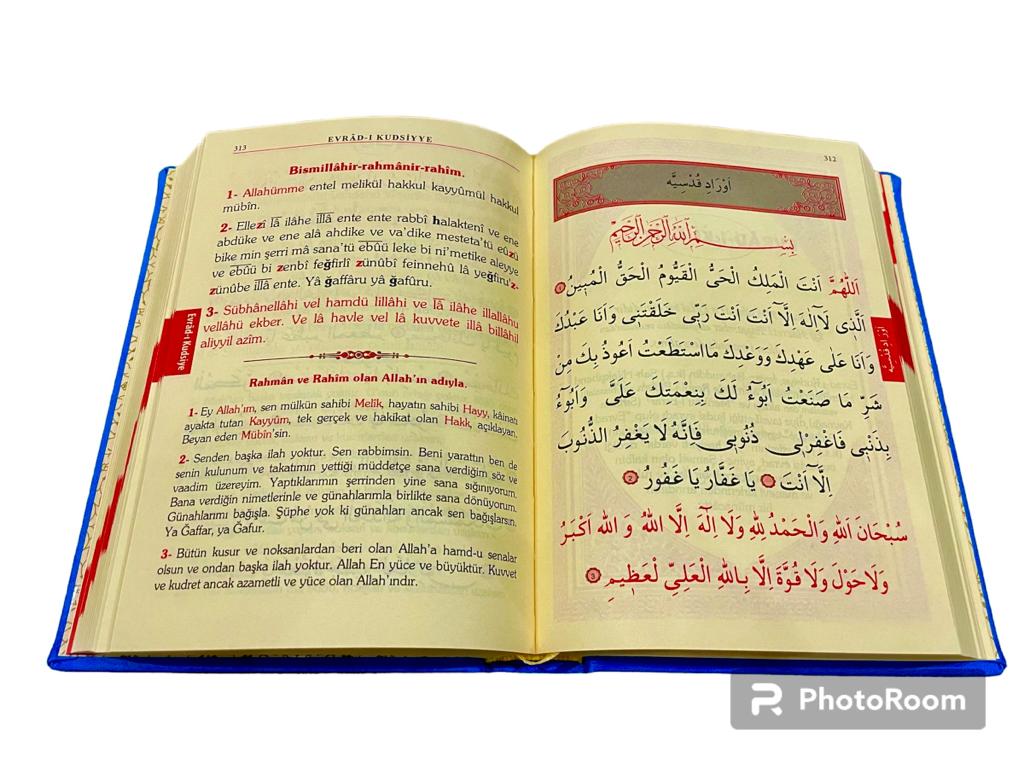 312
اَوْرَادِ قُدْسِيَّه
بِسْمِ اللّٰهِ الرَّحْمٰنِ الرَّحِيمِ
اَللّٰهُمَّ اَنْتَ الْمَلِكُ الْحَىُّ الْقَيُّومُ الْحَقُّ الْمُبٖينُ ١
اَلَّذٖى لَٓا اِلٰهَ اِلَّٓا اَنْتَ اَنْتَ رَبّٖى خَلَقْتَنٖى وَاَنَا عَبْدُكَ
وَاَنَا عَلٰى عَهْدِكَ وَوَعْدِكَ مَا اسْتَطَعْتُ اَعُوذُ بِكَ مِنْ
شَرِّ مَا صَنَعْتُ اَبُوٓءُ لَكَ بِنِعْمَتِكَ عَلَىَّ وَاَبُوٓءُ
بِذَنْبٖى فَاغْفِرْلٖى ذُنُوبٖى فَاِنَّهُ لَا يَغْفِرُ الذُّنُوبَ
اِلَّٓا اَنْتَ يَا غَفَّارُ يَا غَفُورُ ٢
سُبْحَانَ اللّٰهِ وَالْحَمْدُ لِلّٰهِ وَلَا اِلٰهَ اِلَّا اللّٰهُ وَ اللّٰهُ اَكْبَرُ
وَلَا حَوْلَ وَلَا قُوَّةَ اِلَّا بِاللّٰهِ الْعَلِىِّ لْعَظٖيمِ ٣
اَوْرَادِ قُدْسِيَّه
313
EVRÂD-I KUDSİYYE
Bismillâhir-rahmânir-rahîm.
1- Allahümme entel melikül hakkul kayyûmül hakkul
mübîn.
2- Ellezî lâ ilâhe illâ ente ente rabbî halaktenî ve ene
abdüke ve ene alâ ahdike ve va'dike mesteta'tü eûzü
bike min şerri mâ sana'tü ebûü leke bi ni'metike aleyye
ve ebûü bi zenbî feğfirlî zünûbî feinnehû lâ yeğfiru'z-
zünûbe illâ ente. Yâ ğaffâru yâ ğafûru.
3- Sübhânellâhi vel hamdü lillâhi ve lâ ilâhe illallahu
vellâhü ekber. Ve lâ havle vel lâ kuvvete illâ billâhil
aliyyil azim.
Rahmân ve Rahîm olan Allah'ın adıyla.
1- Ey Allah'ım, sen mülkün sahibi Melîk, hayatın sahibi Hayy, kâinatı
ayakta tutan Kayyûm, tek gerçek ve hakikat olan Hakk, açıklayan,
Beyan eden Mübîn'sin.
2- Senden başka ilah yoktur. Sen rabbimsin. Beni yarattın ben de
senin kulunum ve takatımın yettiği müddetçe sana verdiğim söz ve
vaadim üzereyim. Yaptıklarımın şerrinden yine sana sığınıyorum.
Bana verdiğin nimetlerinle ve günahlarımla birlikte sana dönüyorum.
Günahlarımı bağışla. Şüphe yok ki günahları ancak sen bağışlarsın.
Ya Ğaffar, ya Ğafur.
3- Bütün kusur ve noksanlardan beri olan Allah'a hamd-u senalar
olsun ve ondan başka ilah yoktur. Allah En yüce ve büyüktür. Kuvvet
ve kudret ancak azametli ve yüce olan Allah'ındır.
Evrâd-ı Kudsiye
PhotoRoom